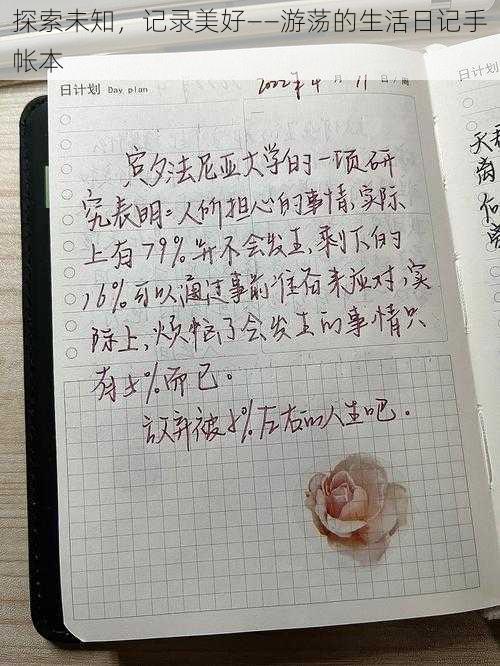 探索未知，记录美好——游荡的生活日记手
帐本
日计划 Day plan
2022年4月11日/周
宾夕法尼亚大学的一项研
究表明：人所担心的事情，实际
上有79%并不会发生，剩下的
16%可以通过事前准备来应对，实
际上，烦恼了会发生的事情只
有5%而已。
放弃被5%左右的人生吧。
天
离
离